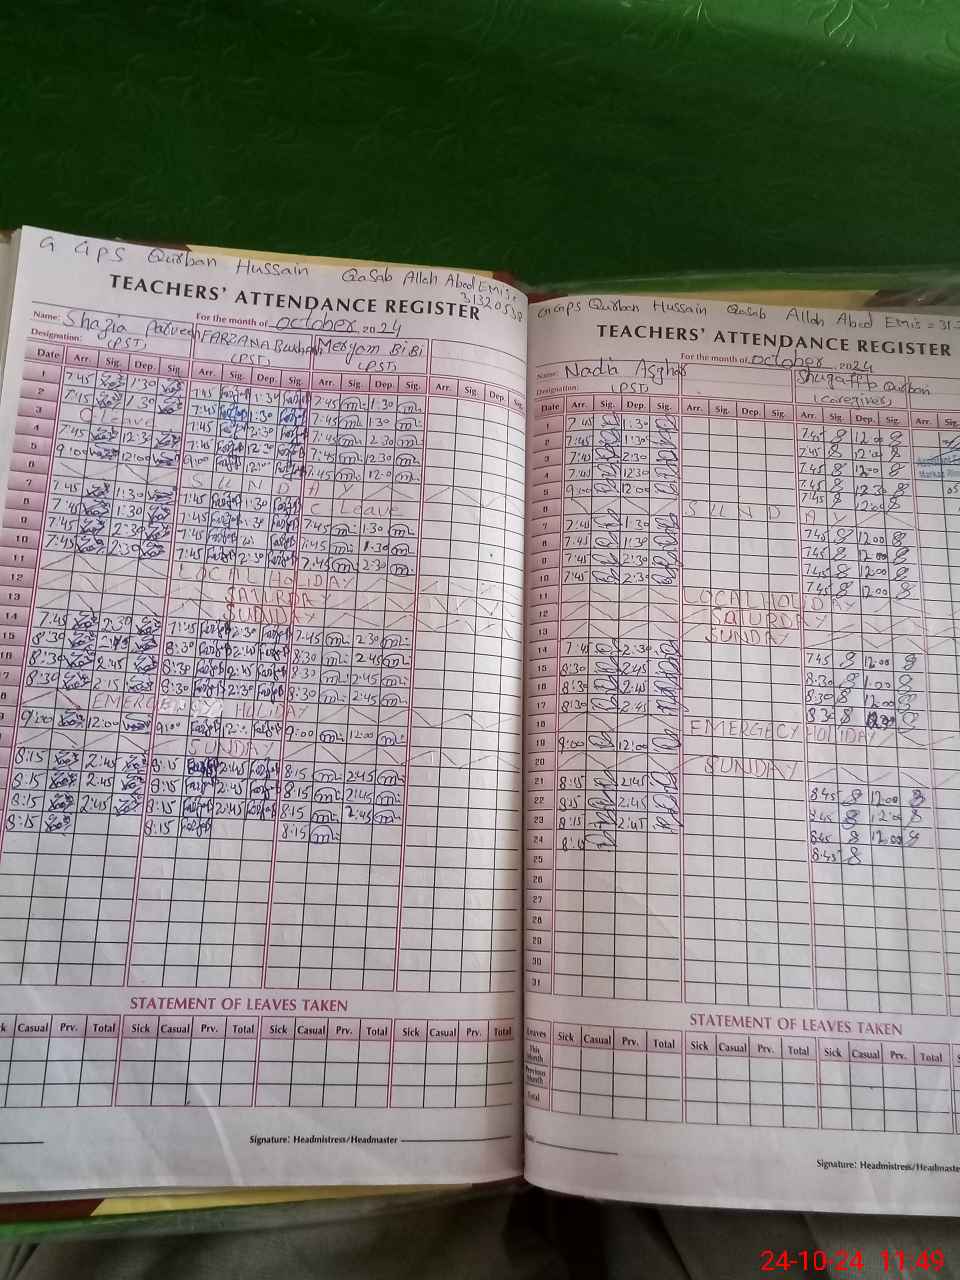 G GPS Qurban Hussain Qasab Allah Abad EMis=
31320538
TEACHERS' ATTENDANCE REGISTER
For the month of October 2024
Name: Shazia Parveen FARZANA Meryam BiBi
Designation: (PST) (PST) (PST)
Date Arr. Sig. Dep. Sig. Arr. Sig. Dep. Sig. Arr. Sig. Dep. Sig. Arr. Sig. Dep. Sig.
1 7:45 1:30 7:45 1:30 7:45 1:30
2 7:15 1:30 7:45 1:30 7:45 1:30
3 C Leave 7:45 2:30 7:45 2:30
4 7:45 12:30 7:45 12:30 7:45 12:30
5 9:00 12:00 9:00 12:00 7:45 12:00
6 SUNDAY
7 7:45 1:30 7:45 1:30 C Leave
8 7:45 1:30 7:45 1:30 7:45 1:30
9 7:45 2:30 7:45 7:45 1:30
10 7:45 2:30 7:45 2:30 7:45 2:30
11 LOCAL HOLIDAY
12 SATURDAY
13 SUNDAY
14 7:45 2:30 7:45 2:30 7:45 2:30
15 8:30 8:30 2:45 8:30 2:45
16 8:30 2:45 8:30 2:45 8:30 2:45
17 8:30 2:15 8:30 2:30 8:30 2:45
EMERGENSY HOLIDAY
9:00 12:00 9:00 9:00 12:00
SUNDAY
8:15 2:45 8:15 2:45 8:15 2:45
8:15 2:45 8:15 2:45 8:15 2:45
8:15 2:45 8:15 2:45 8:15 2:45
8:15 8:15 8:15
STATEMENT OF LEAVES TAKEN
Casual Prv. Total Sick Casual Prv. Total Sick Casual Prv. Total Sick Casual Prv. Total
Signature: Headmistress/Headmaster
GGPS Qurban Hussain Qasab Allah Abad Emis = 31
TEACHERS' ATTENDANCE REGISTER
For the month of October 2024
Name: Nadia Asghar Shugafta Qurban
Designation: (PST) (caregiver)
Date Arr. Sig. Dep. Sig. Arr. Sig. Dep. Sig. Arr. Sig. Dep. Sig. Arr.
1 7:45 1:30 7:45 12:00
2 7:45 1:30 7:45 12:00
3 7:45 2:30 7:45 12:00
4 7:45 12:30 7:45 12:30
5 9:00 12:00 7:45 12:00
6 SUNDAY
7 7:45 1:30 7:45 12:00
8 7:45 1:30 7:45 12:00
9 7:45 2:30 7:45 12:00
10 7:45 2:30 7:45 12:00
11 LOCAL HOLIDAY
12 SATURDAY
13 SUNDAY
14 7:45 2:30 7:45 12:00
15 8:30 2:45 8:30 1:00
16 8:30 2:45 8:30 12:00
17 8:30 2:45 8:30
18 EMERGECY HOLIDAY
19 9:00 12:00
20 SUNDAY
21 8:15 2:45 8:45 12:00
22 8:15 2:45 8:45 12:00
23 8:15 2:45 8:45 12:00
24 8:15 8:45
25
26
27
28
29
30
31
STATEMENT OF LEAVES TAKEN
Leaves Sick Casual Prv. Total Sick Casual Prv. Total Sick Casual Prv. Total
This Month
Previous Month
Total
Signature: Headmistress/Headmaster
24-10-24 11:49